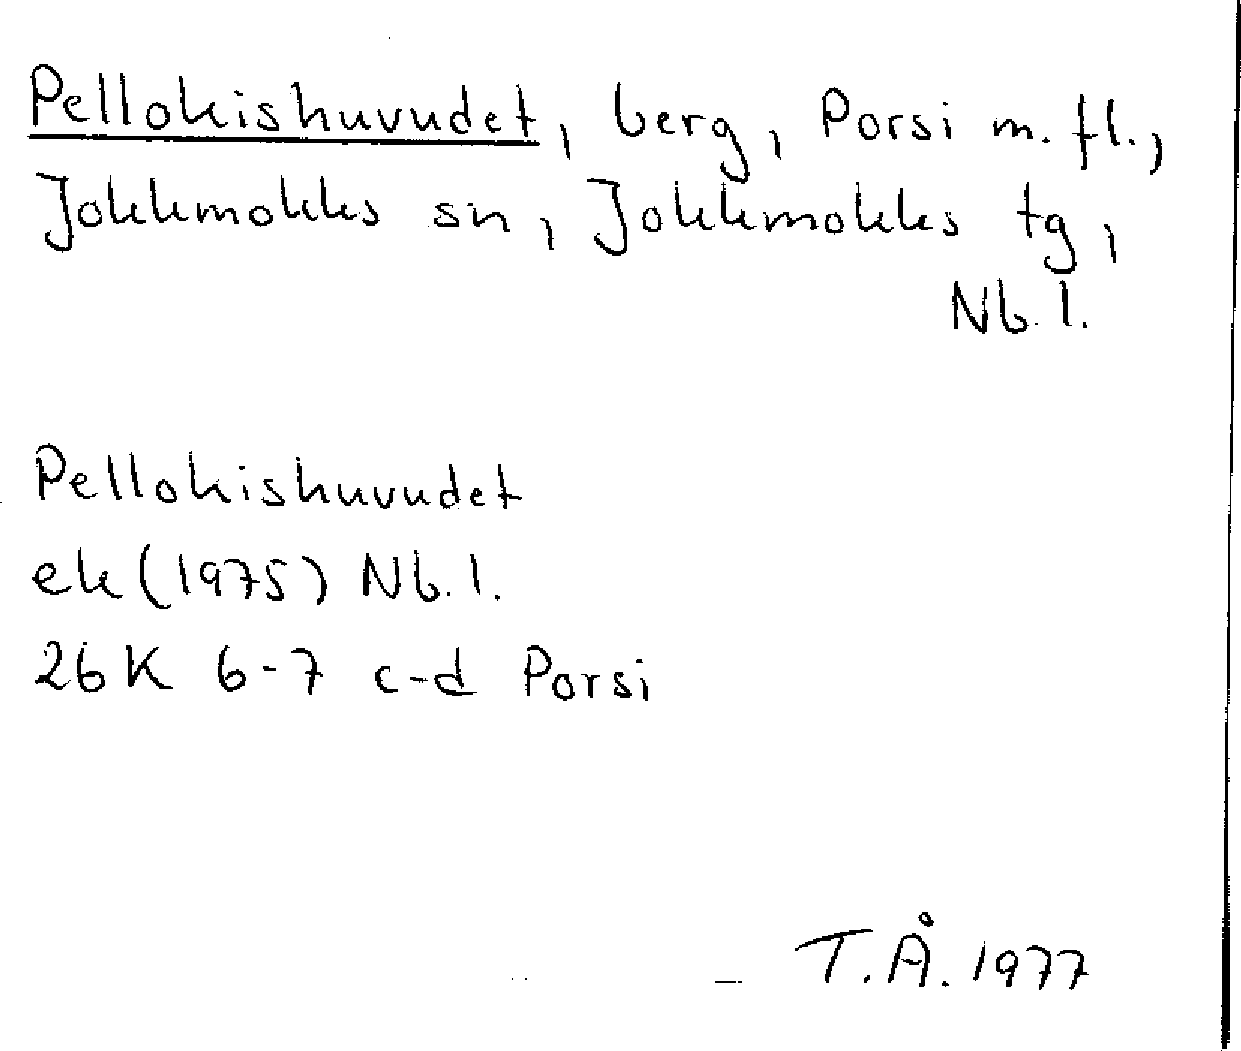 Pellokishuvudet, berg, Porsi m. fl.,
Jokkmokks sn, Jokkmokks tg,
Nb. l.
Pellokishuvudet
ek (1975) Nb. l.
26K 6-7 c-d Porsi
T.Å. 1977